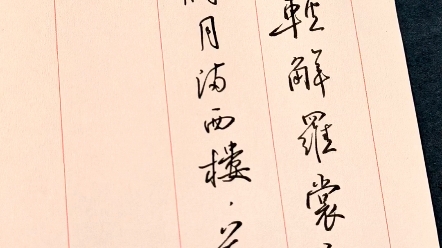 輕解羅裳
月滿西樓·